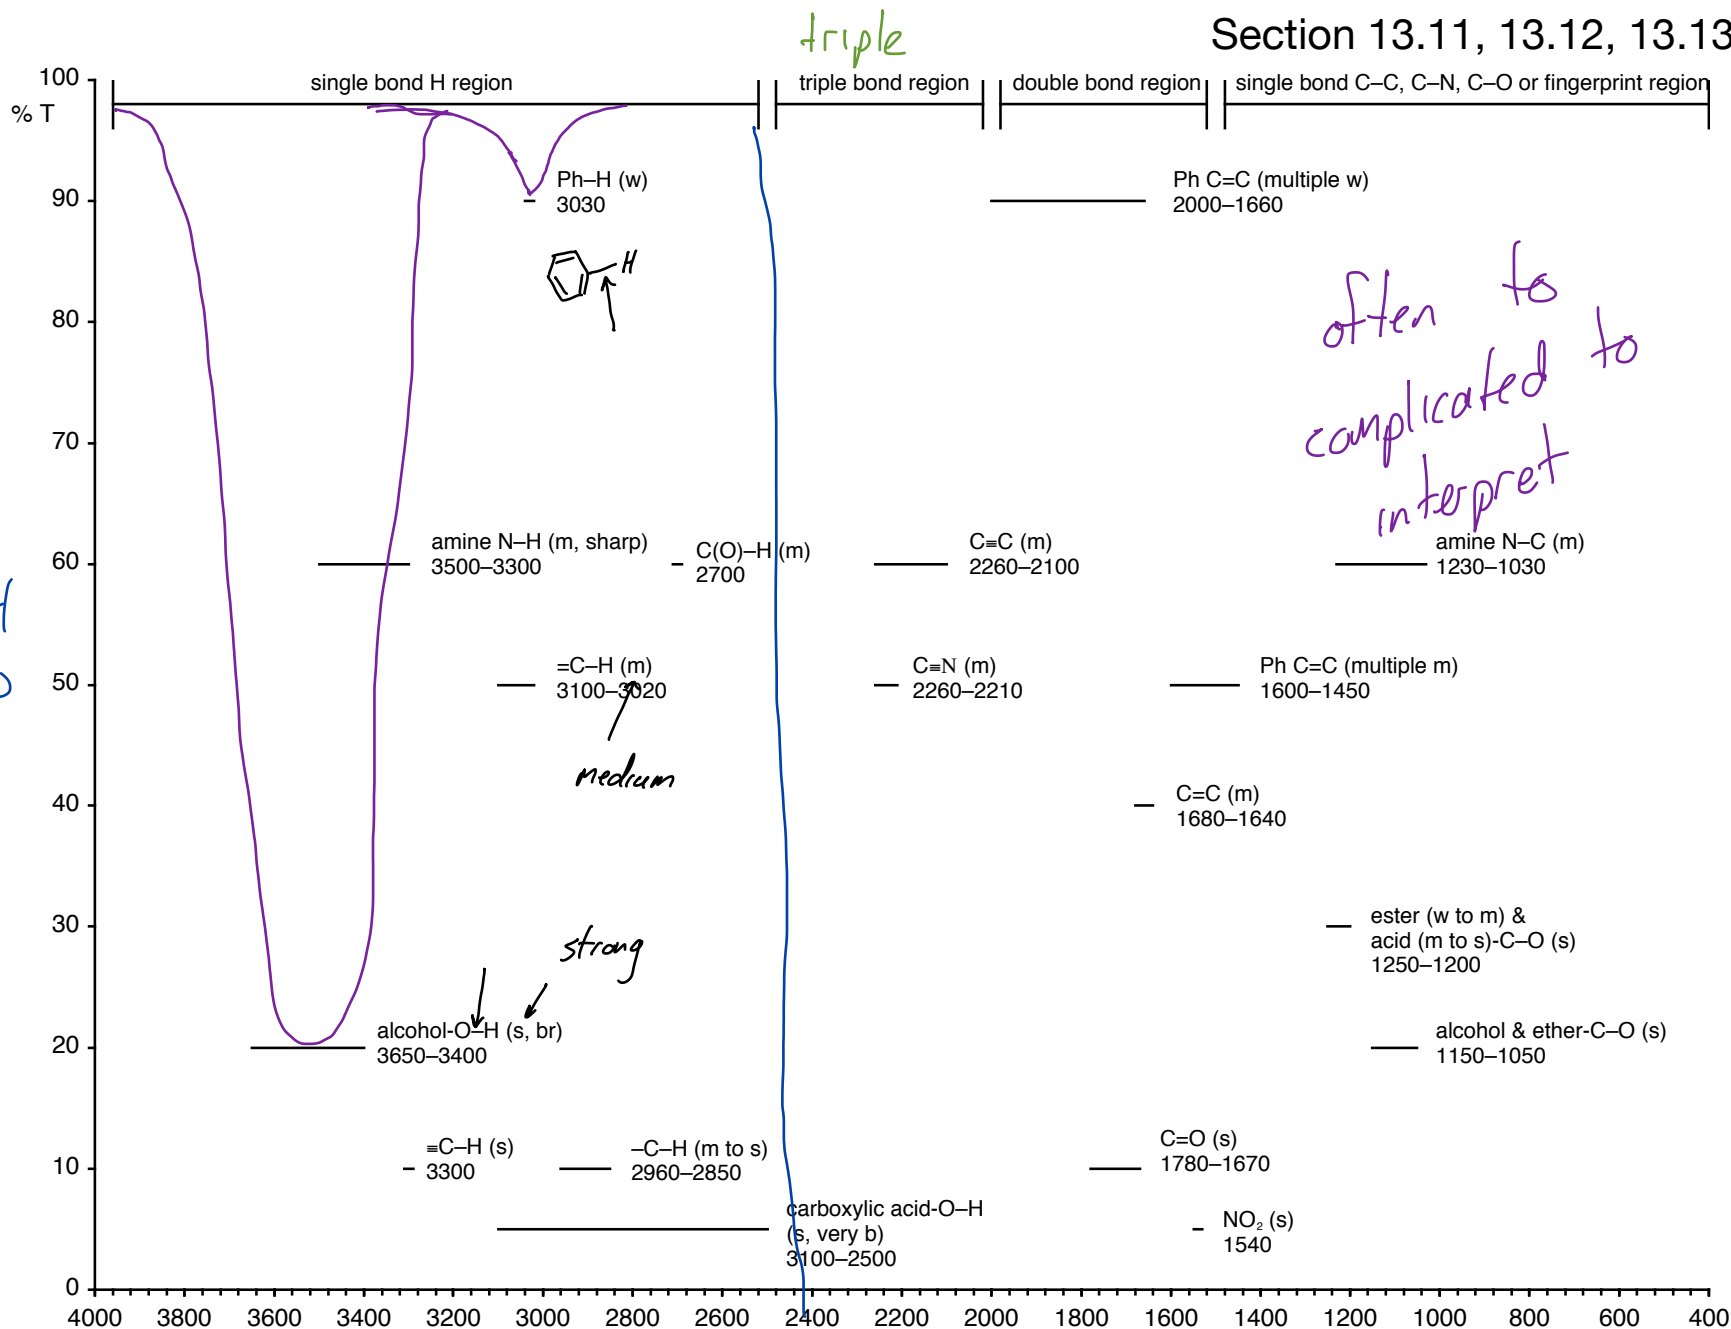 triple
Section 13.11, 13.12, 13.13
100
% T
single bond H region
triple bond region
double bond region
single bond C–C, C–N, C–O or fingerprint region
Ph–H (w)
3030
Ph C=C (multiple w)
2000–1660
90
H
often to
complicated to
interpret
80
70
amine N–H (m, sharp)
3500–3300
C(O)–H (m)
2700
C≡C (m)
2260–2100
amine N–C (m)
1230–1030
60
=C–H (m)
3100–3020
C≡N (m)
2260–2210
Ph C=C (multiple m)
1600–1450
50
medium
C=C (m)
1680–1640
40
strong
ester (w to m) &
acid (m to s)-C–O (s)
1250–1200
30
alcohol-O–H (s, br)
3650–3400
alcohol & ether-C–O (s)
1150–1050
20
≡C–H (s)
3300
–C–H (m to s)
2960–2850
C=O (s)
1780–1670
10
carboxylic acid-O–H
(s, very b)
3100–2500
NO₂ (s)
1540
0
4000 3800 3600 3400 3200 3000 2800 2600 2400 2200 2000 1800 1600 1400 1200 1000 800 600 400